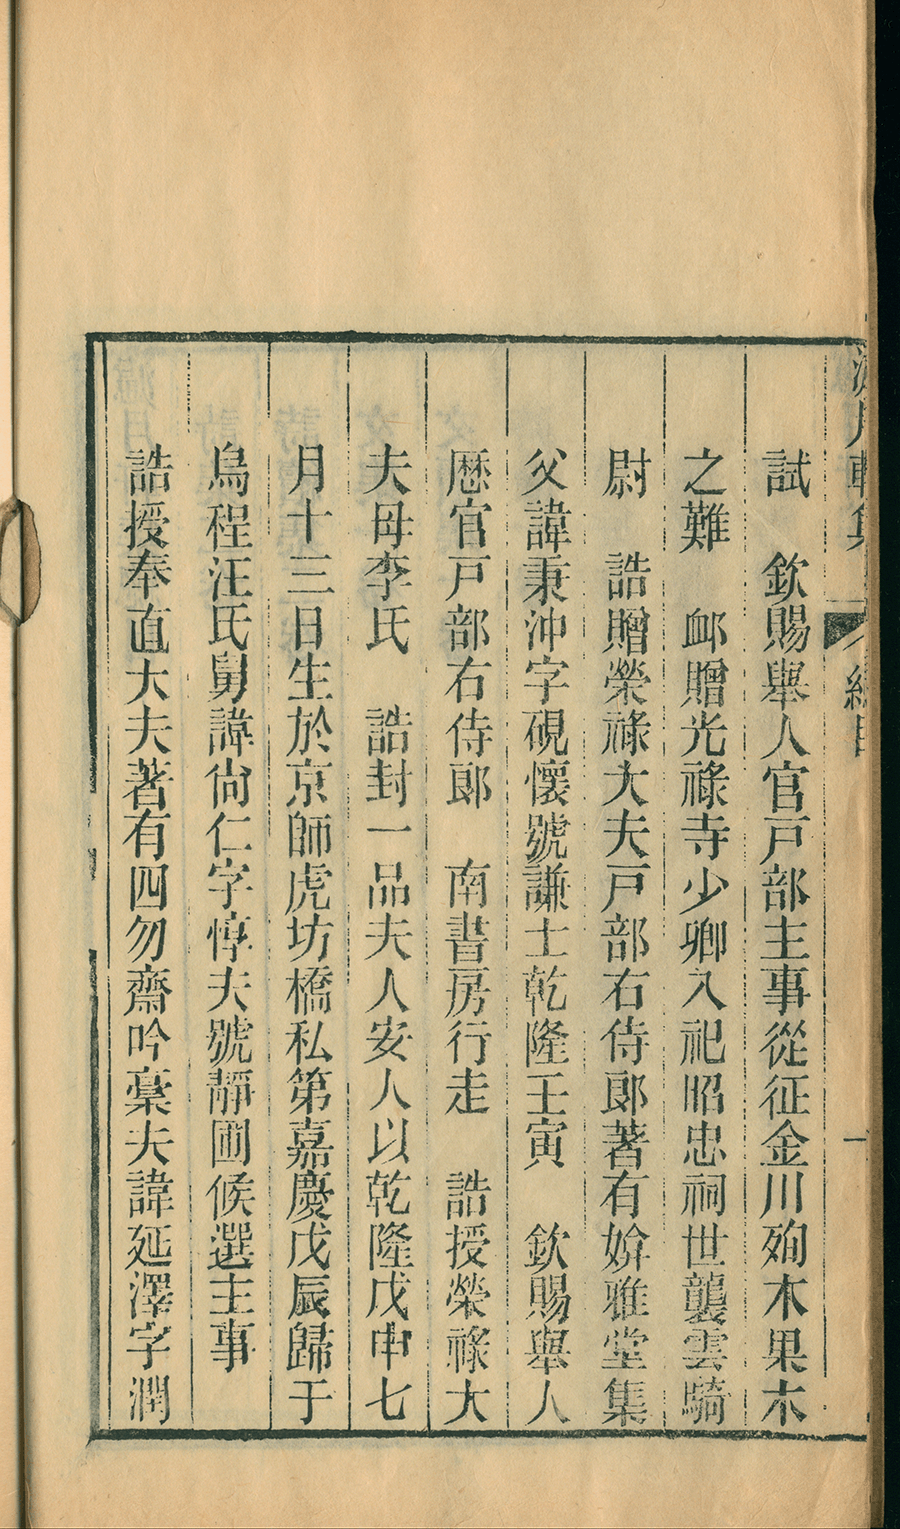 試　欽賜舉人官戸部主事從征金川殉木果木
之難　䘏贈光祿寺少卿入祀昭忠祠世襲雲騎
尉　誥贈榮祿大夫戸部右侍郎著有媕雅堂集
父諱秉沖字硯懷號謙士乾隆壬寅　欽賜舉人
歴官戸部右侍郎　南書房行走　誥授榮祿大
夫母李氏　誥封一品夫人安人以乾隆戊申七
月十三日生於京師虎坊橋私第嘉慶戊辰歸于
烏程汪氏舅諱尙仁字惇夫號靜圃候選主事
誥授奉直大夫著有四勿齋吟稾夫諱延澤字潤